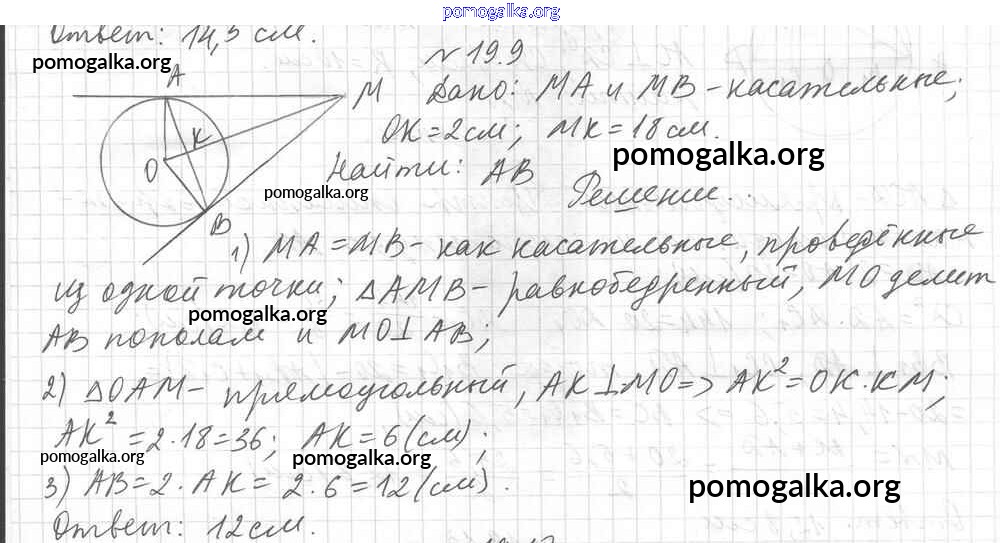 pomogalka.org
Ответ: 14,5 см.
pomogalka.org
№ 19.9
A
M
Дано: MA и MB - касательные;
OK=2см; MK=18см.
K
O
pomogalka.org
Найти: AB
pomogalka.org
Решение.
B
1) MA=MB - как касательные, проведённые
из одной точки; △AMB - равнобедренный, MO делит
pomogalka.org
AB пополам и MO⊥AB;
2) △OAM - прямоугольный, AK⊥MO=> AK²=OK·KM;
AK²=2·18=36; AK=6(см);
pomogalka.org
pomogalka.org
3) AB=2·AK=2·6=12(см).
pomogalka.org
Ответ: 12см.